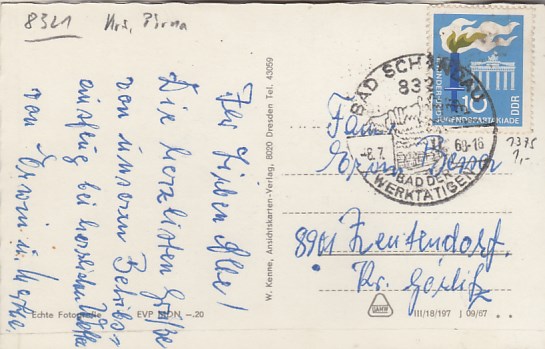 8321 Krs. Pirna
Ihr Lieben Alle!
Die herzlichsten Grüße
von unserem Betriebs-
ausflug bei herrlichem Wetter
von Erwin u.
Echte Fotografie EVP MDN –.20
W. Kenne, Ansichtskarten-Verlag, 8020 Dresden Tel. 43059
BAD SCHANDAU
832
-8.7. 68-16
BAD DER
WERKTÄTIGEN
KINDER- UND
JUGENDSPARTAKIADE
10
DDR
1375
1,-
Fam.
Erwin
8901 Zentendorf.
Kr. Görlitz
III/18/197 J 09/67